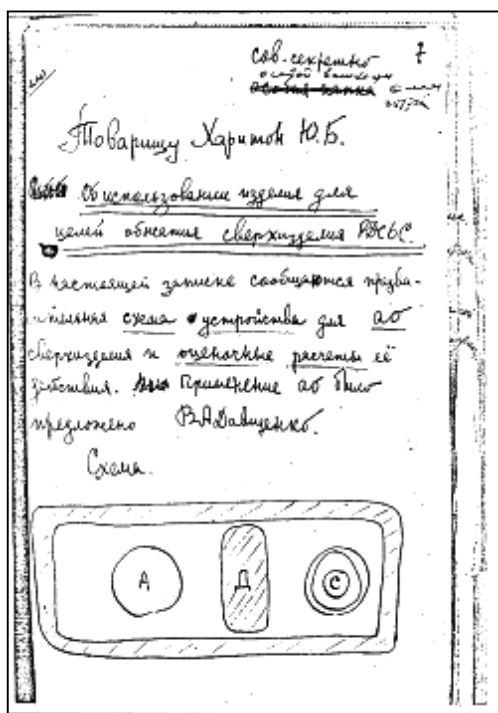 7
Сов. секретно
особой важности
особая папка
Товарищу Харитон Ю.Б.
Об использовании изделия для
целей обжатия сверхизделия РДС6С.
В настоящей записке сообщаются предва-
рительная схема устройства для АО
сверхизделия и оценочные расчеты её
действия. Применение АО было
предложено В.А.Давиденко.
Схема.
А Д С